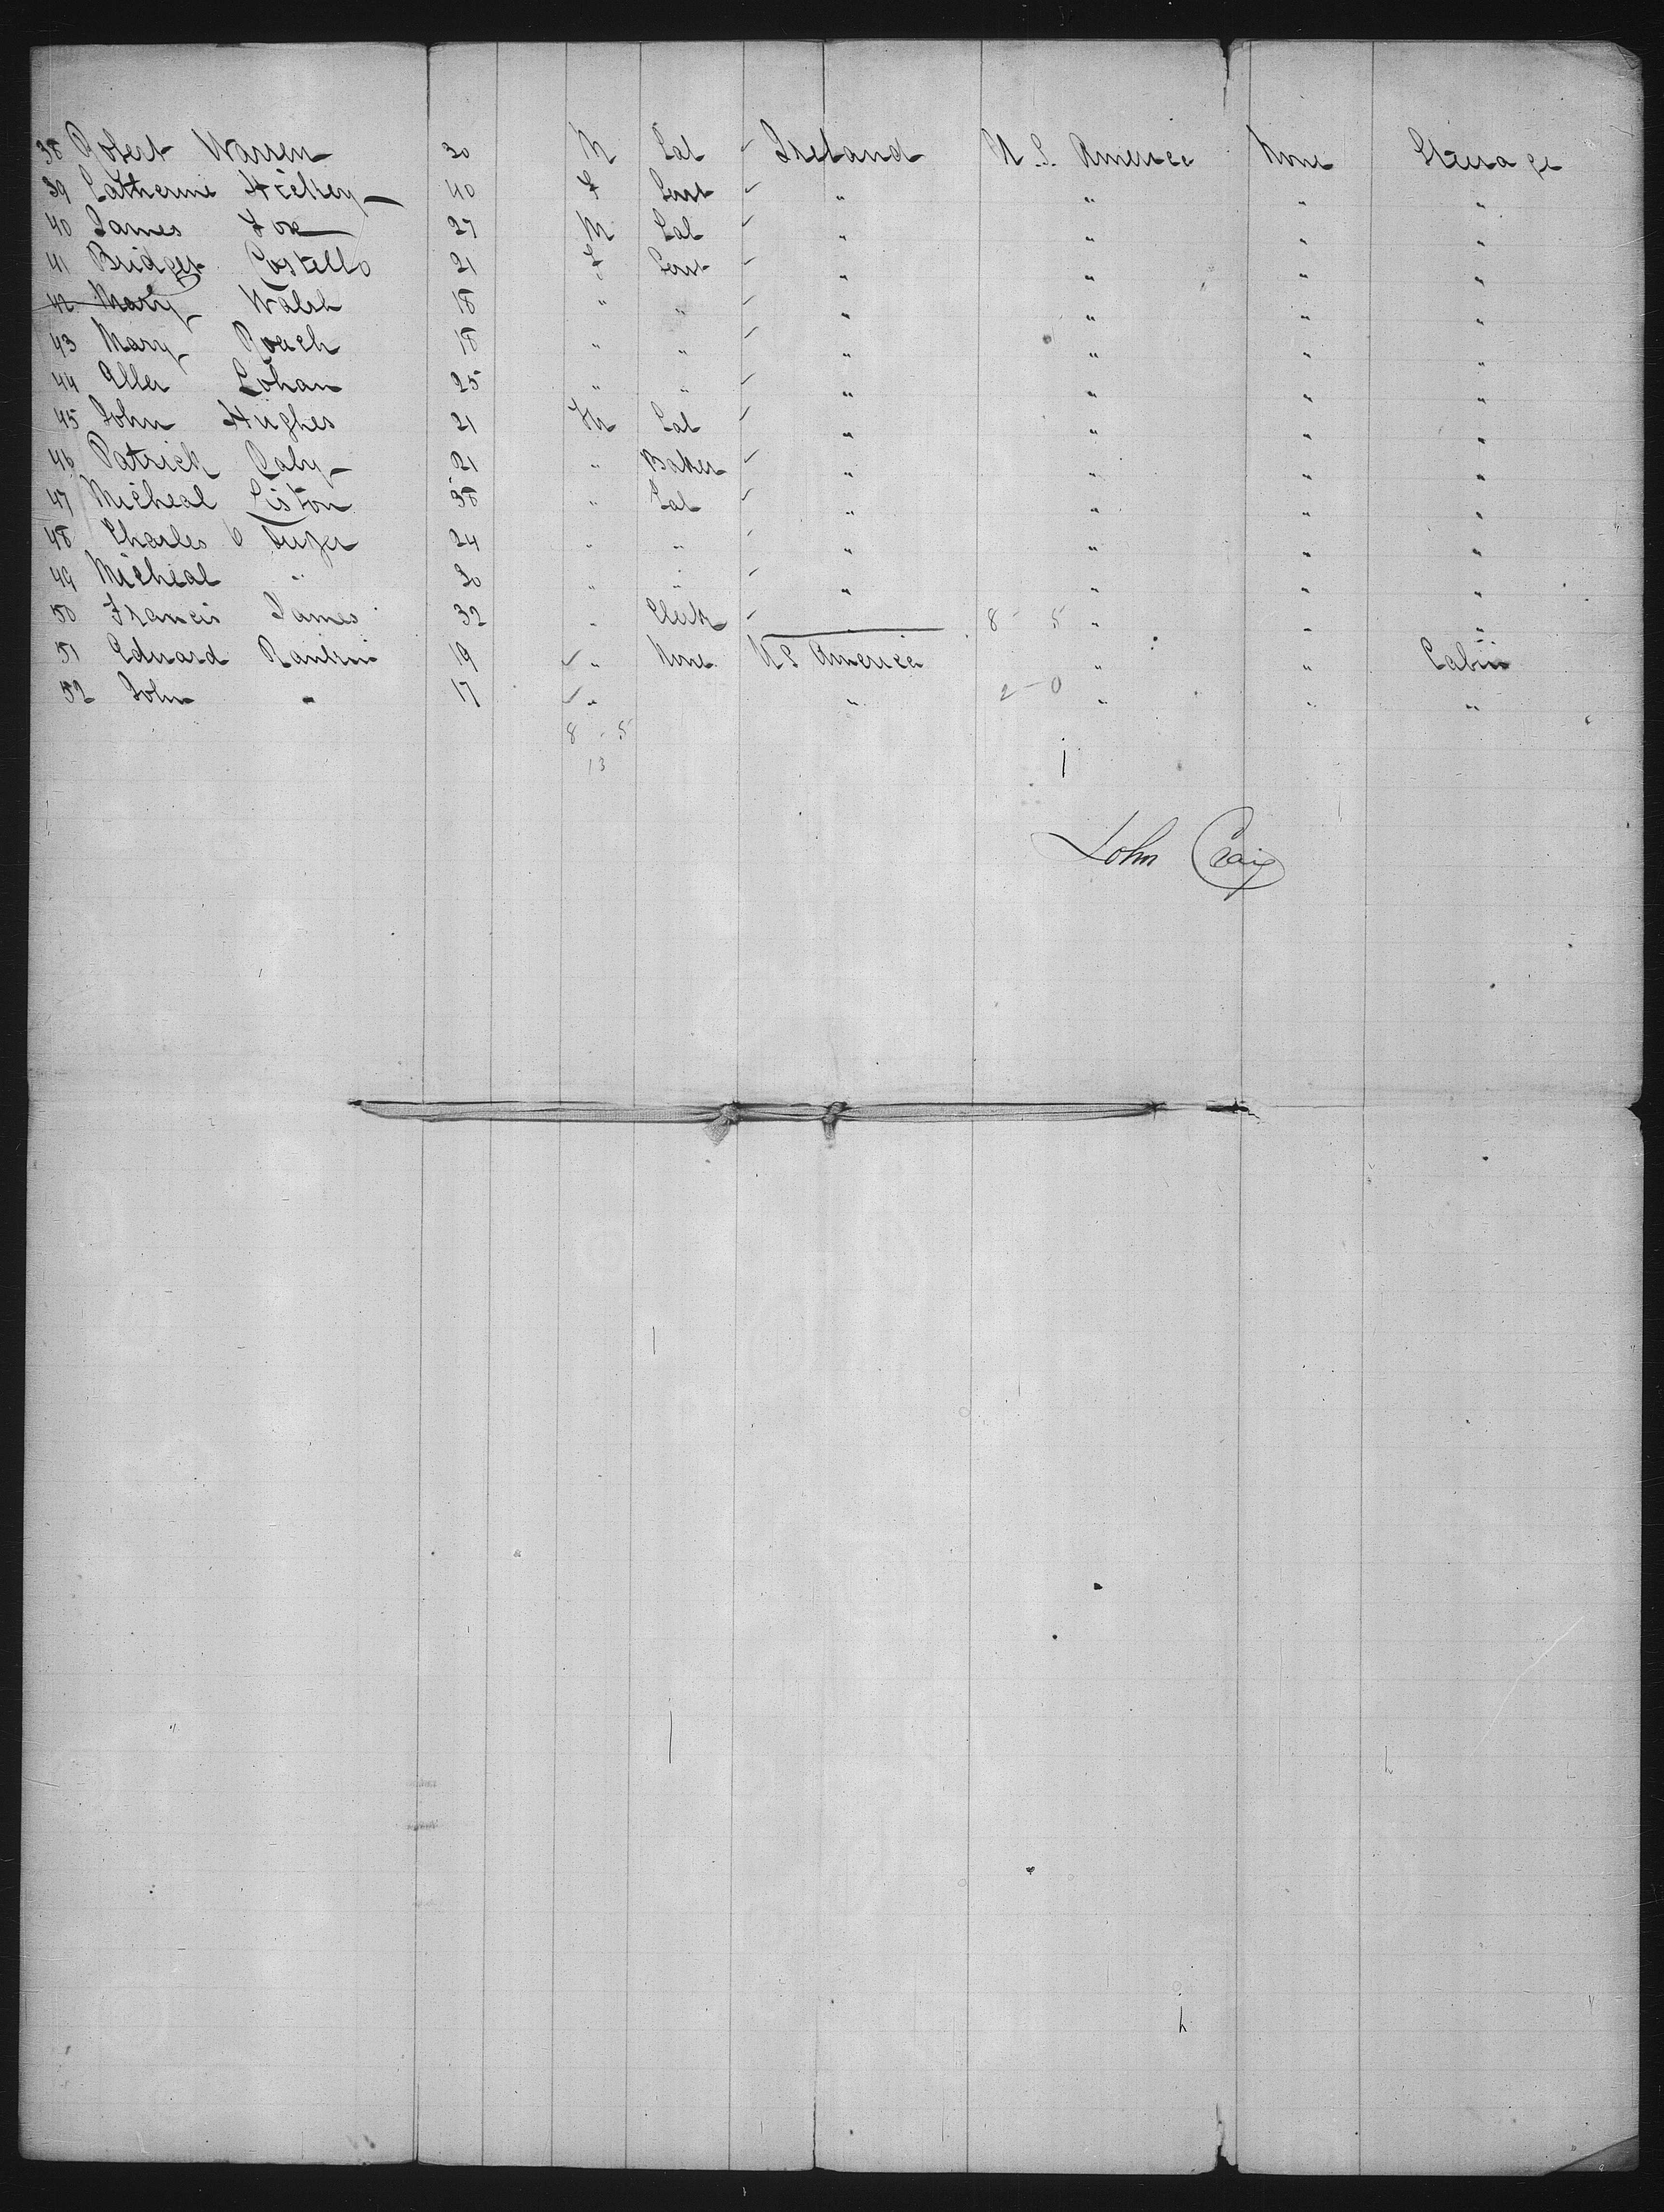 38 Robert Warren 30 M Lab ✓ Ireland U.S. America None Steerage
39 Catherine Hickey 40 F Servt ✓ " " " "
40 James Fox 27 M Lab ✓ " " " "
41 Bridget Costello 21 F Servt ✓ " " " "
42 Mary Walsh 18 " " ✓ " " " "
43 Mary Roach 18 " " ✓ " " " "
44 Ellen Lohan 25 " " ✓ " " " "
45 John Hughes 21 M Lab ✓ " " " "
46 Patrick Daly 21 " Baker ✓ " " " "
47 Micheal Liston 38 " Lab ✓ " " " "
48 Charles O 24 " " ✓ " " " "
49 Micheal " 30 " " ✓ " " " "
50 Francis James 32 " Clerk ✓ " 8 - 5 " " "
51 Edward 19 ✓ " None U S America " " Cabin
52 John " 17 ✓ " " 2 - 0 " " "
8 - 5
13
John Craig